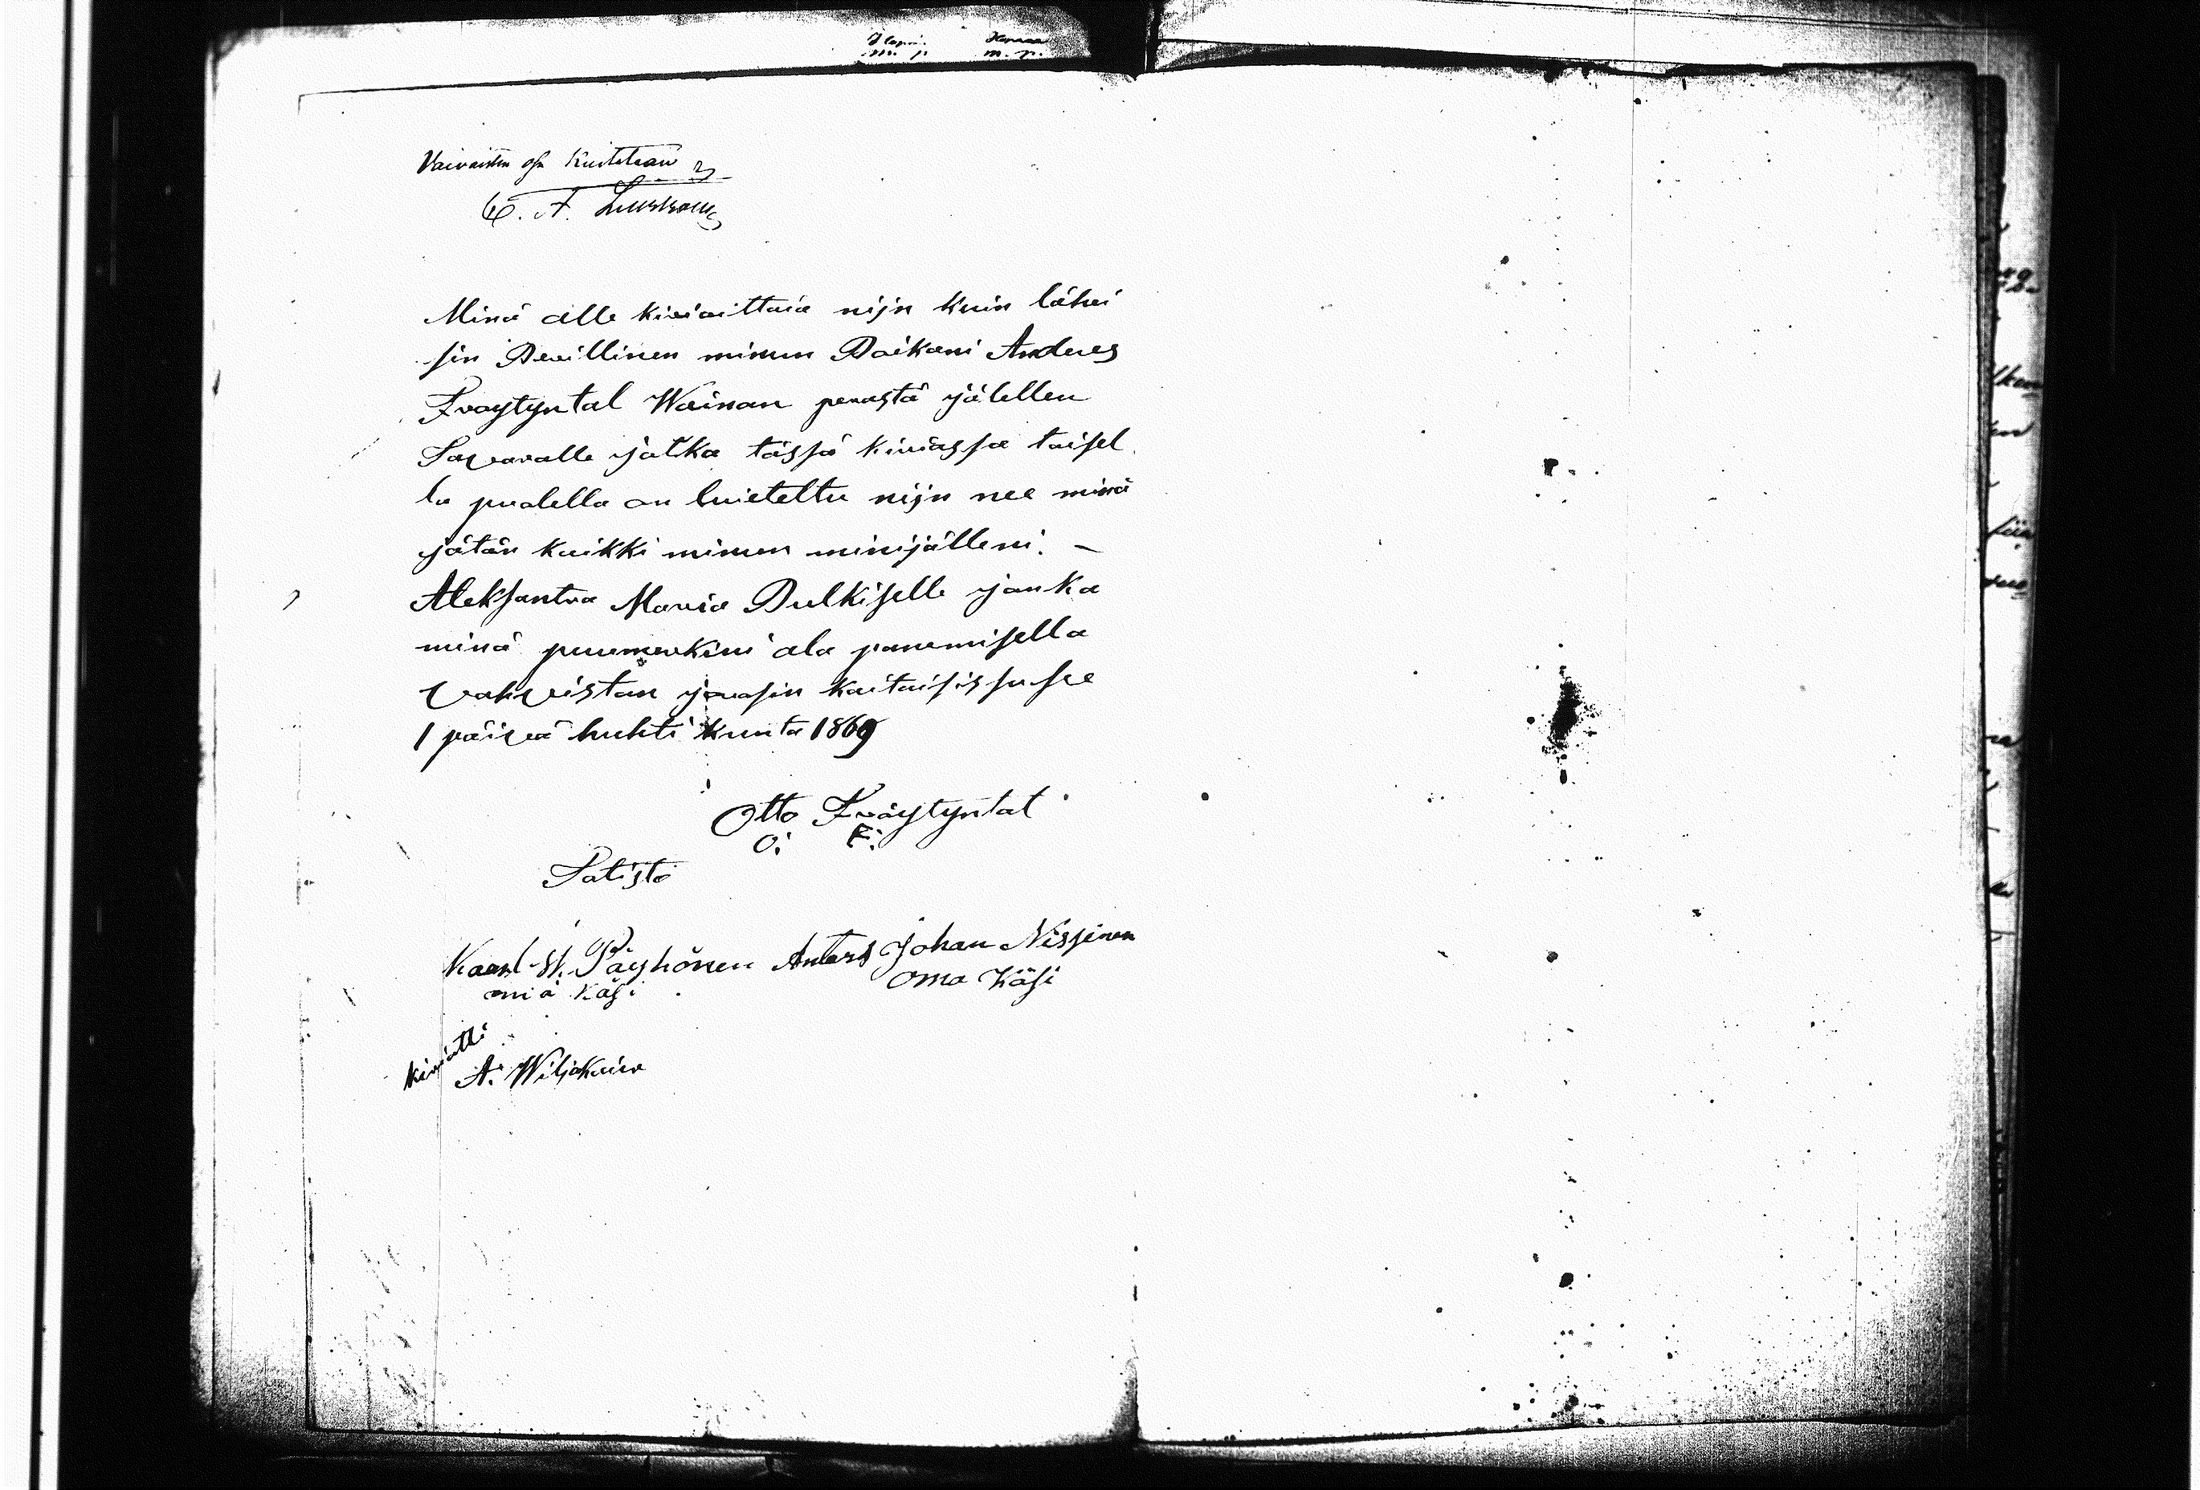 Vaivaisten osa kuitetaan
Minä alle kirjoittaia nijn kuin lähei
sin Perillinen minun Poikani Anders
Fröytyntal Wainan perästä jälellen
Tavaralle jotka tässä kiriassa toisel
la puolella on luieteltu nijn nee minä
jätän kaikki minun minijälleni. –
Aleksantra Maria Pulkiselle jonka
minä puumerkini ala panemisella
vahvistan
1 päivä huhti kunta 1869
Otto Fröytyntal
O: F:
Totista
Kaarl W. Päyhönen Anters Johan Nissinen
oma Käsi
kirioitti
A. Wiljakain